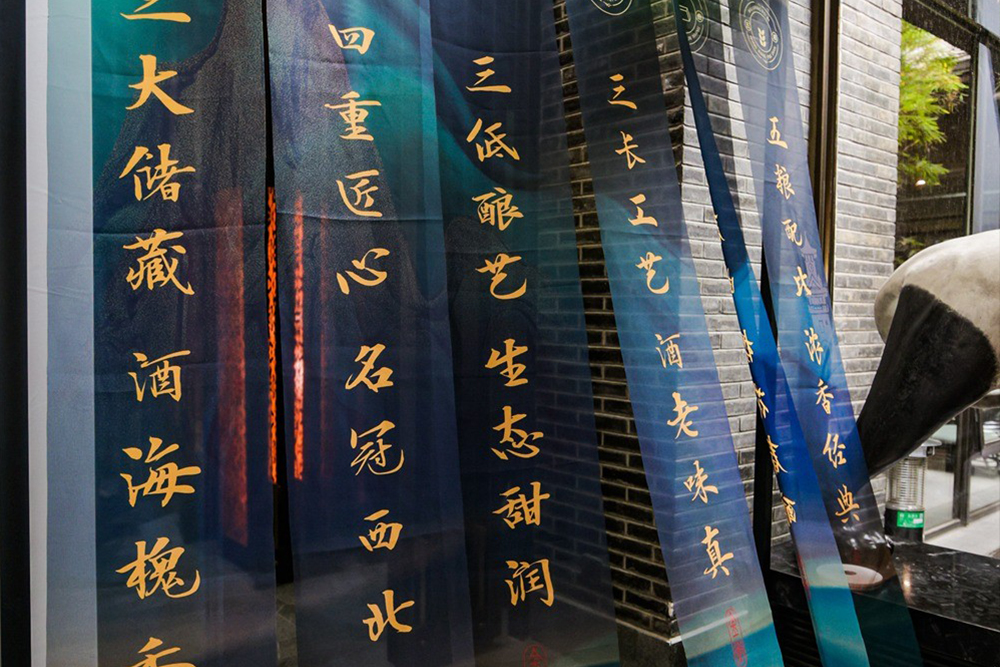 三大储藏 酒海槐香
四重匠心 名冠西北
三低酿艺 生态甜润
三长工艺 酒老味真
五粮配比 浓香经典